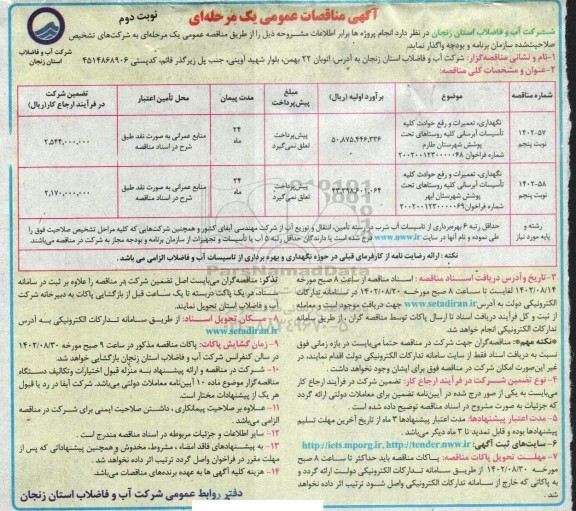 آگهی مناقصات عمومی یک مرحله‌ای
نوبت دوم
شرکت آب و فاضلاب استان زنجان
شرکت آب و فاضلاب استان زنجان در نظر دارد انجام پروژه ها برابر اطلاعات مشروحه ذیل را از طریق مناقصه عمومی یک مرحله‌ای به شرکت‌های تشخیص
صلاحیت‌شده سازمان برنامه و بودجه واگذار نماید.
۱-نام و نشانی مناقصه‌گزار: شرکت آب و فاضلاب استان زنجان به آدرس: اتوبان ۲۲ بهمن، بلوار شهید اوینی، جنب پل زیرگذر قائم، کدپستی ۴۵۱۴۶۸۹۰۶
۲-عنوان و مشخصات کلی مناقصه:
شماره مناقصه موضوع برآورد اولیه (ریال) مبلغ پیش‌پرداخت مدت پیمان محل تأمین اعتبار تضمین شرکت در فرآیند ارجاع کار(ریال)
۱۴۰۲-۵۷ نوبت پنجم نگهداری، تعمیرات و رفع حوادث کلیه تأسیسات آبرسانی کلیه روستاهای تحت پوشش شهرستان طارم شماره فراخوان ۲۰۰۲۰۰۱۲۳۰۰۰۰۰۶۸ ۵۰,۸۷۵,۴۴۶,۳۳۶ پیش‌پرداخت تعلق نمی‌گیرد ۲۴ ماه منابع عمرانی به صورت نقد طبق شرح در اسناد مناقصه ۲,۵۴۴,۰۰۰,۰۰۰
۱۴۰۲-۵۸ نوبت پنجم نگهداری، تعمیرات و رفع حوادث کلیه تأسیسات آبرسانی کلیه روستاهای تحت پوشش شهرستان ابهر شماره فراخوان ۲۰۰۲۰۰۱۲۳۰۰۰۰۰۶۹ ۴۳,۳۹۸,۶۰۱,۰۶۴ پیش‌پرداخت تعلق نمی‌گیرد ۲۴ ماه منابع عمرانی به صورت نقد طبق شرح در اسناد مناقصه ۲,۱۷۰,۰۰۰,۰۰۰
رشته و پایه مورد نیاز
حداقل رتبه ۶ بهره‌برداری از تاسیسات آب شرب در رسته تأمین، انتقال و توزیع آب از شرکت مهندسی آبفای کشور و همچنین شرکت‌هایی که کلیه مراحل تشخیص صلاحیت فوق را
طی نموده و نام آنها در سایت www.nww.ir درج شده است یا دارندگان حداقل رتبه ۵ آب یا تأسیسات و تجهیزات از سازمان برنامه و بودجه مجاز به شرکت در مناقصه می‌باشند.
نکته : ارائه رضایت نامه از کارفرمای قبلی در حوزه نگهداری و بهره برداری از تاسیسات آب و فاضلاب الزامی می باشد.
۳-تاریخ و آدرس دریافت اسناد مناقصه : اسناد مناقصه از ساعت ۸ صبح مورخه
۱۴۰۲/۰۸/۱۴ لغایت تا ساعت ۸ صبح مورخه ۱۴۰۲/۰۸/۲۰ در سامانه تدارکات
الکترونیکی دولت به آدرس www.setadiran.ir جهت دریافت موجود است و معامله
از ثبت و کل فرآیند دریافت اسناد تا ارسال پاکات توسط مناقصه گران ، از طریق سامانه
تدارکات الکترونیکی انجام خواهد شد.
«نکته مهم»: مناقصه‌گران جهت شرکت در مناقصه حتماً می‌بایست در بازه زمانی فوق
نسبت به دریافت اسناد فقط از سایت سامانه تدارکات الکترونیکی دولت اقدام نمایند، در
غیر این‌صورت امکان شرکت در مناقصه فوق برای ایشان وجود نخواهد داشت .
۴- نوع تضمین شرکت در فرآیند ارجاع کار: تضمین شرکت در فرآیند ارجاع کار
می‌بایست به یکی از صور درج شده در آیین‌نامه تضمین برای معاملات دولتی ارائه گردد
که جزئیات به صورت مشروح در اسناد مناقصه توضیح داده شده است .
۵- مدت اعتبار پیشنهادها: مدت اعتبار پیشنهادها ۳ ماه از تاریخ آخرین مهلت تسلیم
پیشنهادها بوده و قابل تمدید تا ۳ ماه دیگر می‌باشد.
۶- سایت‌های ثبت آگهی: http://iets.mporg.ir, http://tender.nww.ir
۷- مهلت تحویل پاکات مناقصه: پاکات مناقصه باید حداکثر تا ساعت ۸ صبح
مورخه ۱۴۰۲/۰۸/۳۰ از طریق سامانه تدارکات الکترونیکی دولت ارائه گردد و
به پاکاتی که خارج از سامانه تدارکات الکترونیکی واصل شود ترتیب اثر داده نخواهد شد.
تذکر: مناقصه‌گران می‌بایست اصل تضمین شرکت در مناقصه را علاوه بر ثبت در سامانه
ستاد، فیزیک پاکت دربسته تا یک ساعت قبل از بازگشایی پاکات به دبیرخانه شرکت
آب و فاضلاب استان تحویل نمایند.
۸- مکان تحویل اسناد: از طریق سامانه تدارکات الکترونیکی به آدرس
www.setadiran.ir
۹- زمان گشایش پاکات: پاکات مناقصه مذکور در ساعت ۹ صبح مورخه ۱۴۰۲/۰۸/۳۰
در سالن کنفرانس شرکت آب و فاضلاب استان زنجان بازگشایی خواهد شد.
۱۰- شرکت در مناقصه و ارائه پیشنهاد به منزله قبول اختیارات و تکالیف دستگاه
مناقصه‌گزار موضوع ماده ۱۰ آیین‌نامه معاملات دولتی می‌باشد. شرکت آبفا در رد یا قبول
هر یک از پیشنهادات مختار است.
۱۱- علاوه بر صلاحیت پیمانکاری ، داشتن صلاحیت ایمنی برای شرکت در مناقصه
الزامی می‌باشد.
۱۲- سایر اطلاعات و جزئیات مربوطه در اسناد مناقصه مندرج است .
۱۳- به پیشنهادهای فاقد امضاء ، مشروط، مخدوش و همچنین پیشنهاداتی که پس از
مهلت مقرر در فراخوان واصل گردد ترتیب اثر داده نخواهد شد .
۱۴- هزینه کلیه آگهی ها به عهده برنده‌های مناقصات می‌باشد.
دفتر روابط عمومی شرکت آب و فاضلاب استان زنجان